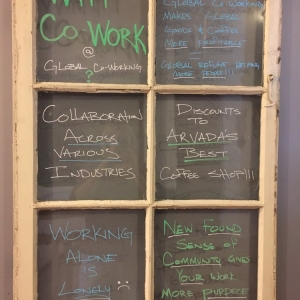 WHY
CO-WORK
@
GLOBAL CO-WORKING
?
GLOBAL CO-WORKING
MAKES GLOBAL
GOODS & COFFEE
MORE PROFITABLE
GLOBAL REFUGE HELPING
MORE PEOPLE!!!
COLLABORATION
ACROSS
VARIOUS
INDUSTRIES
DISCOUNTS
TO
ARVADA'S
BEST
COFFEE SHOP!!!
WORKING
ALONE
IS
LONELY :(
NEW FOUND
SENSE OF
COMMUNITY GIVES
YOUR WORK
MORE PURPOSE